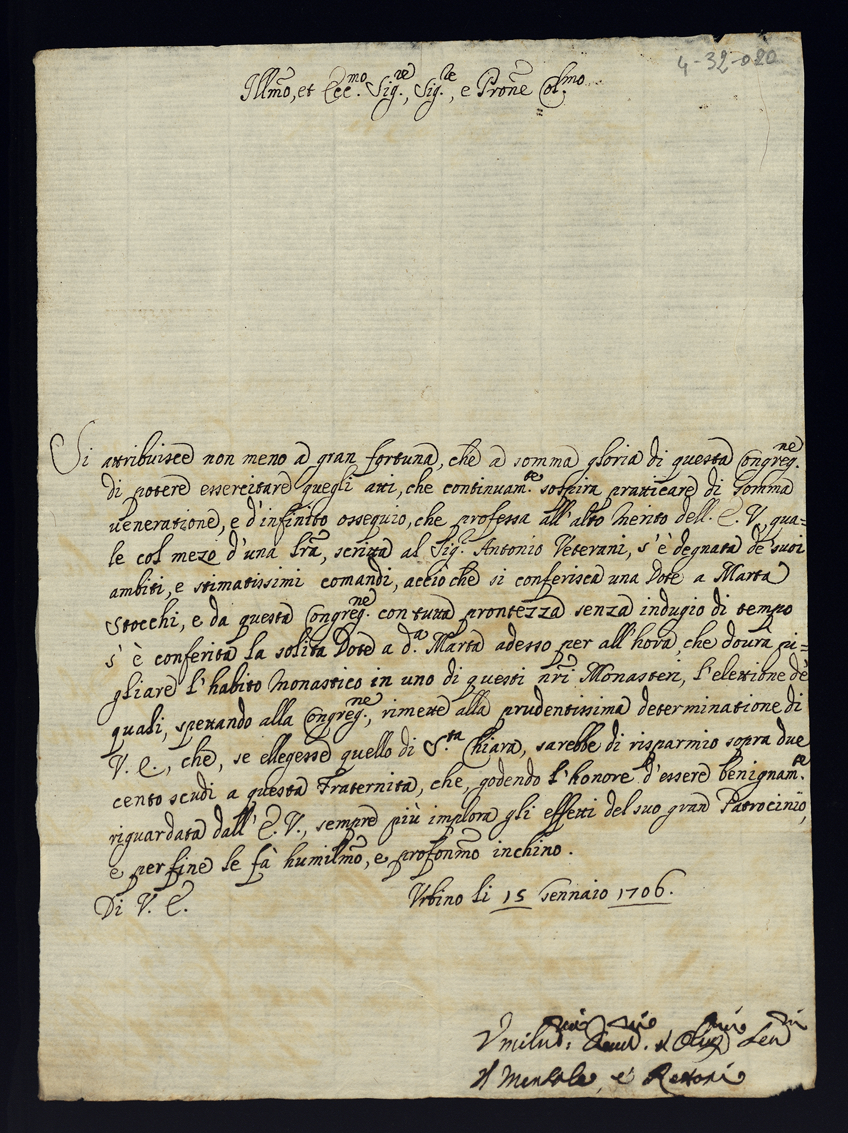 4-32-020
Illmo, et Ecc.mo Sig.re, Sig.re, e Prone Col.mo
Si attribuisce non meno a gran fortuna, che a somma gloria di questa Congreg.ne
di potere essercitare quegli atti, che continuam.te sospira pratticare di somma
veneratione, e d'infinito ossequio, che professa all'alto merito dell' E. V., qua=
le col mezo d'una lra, scritta al Sig.r Antonio Veterani, s'è degnata de suoi
ambiti, e stimatissimi comandi, acciò che si conferisca una Dote a Marta
Stocchi, e da questa Congreg.ne con tutta prontezza senza indugio di tempo
s'è conferita la solita Dote a d.a Marta adesso per all'hora, che dourà pi=
gliare l'habito Monastico in uno di questi nri Monasteri, l'elettione de'
quali, spettando alla Congreg.ne, rimette alla prudentissima determinatione di
V. E., che, se ellegesse quello di S.ta Chiara, sarebbe di risparmio sopra due
cento scudi a questa Fraternita, che, godendo l'honore d'essere benignam.te
riguardata dall' E. V., sempre più implora gli effetti del suo gran Patrocinio,
e per fine le fà humilmo, e profonmo inchino.
Di V. E. Urbino li 15 Gennaio 1706.
Umil.mi Deuot. et Oblig.mi Ser.ri
Il Mensale, e Rettori